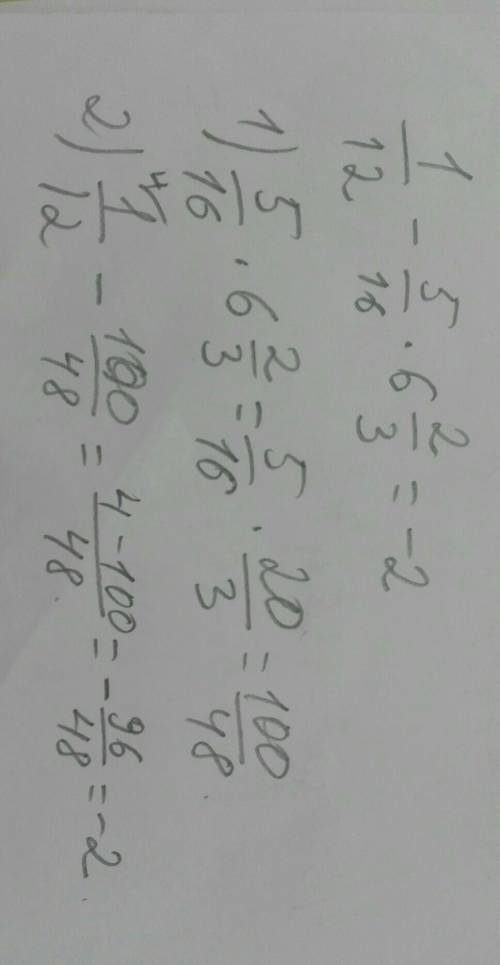 1/12 - 5/16 · 6 2/3 = -2
1) 5/16 · 6 2/3 = 5/16 · 20/3 = 100/48
2) 4/ 1/12 - 100/48 = 4-100/48 = - 96/48 = -2